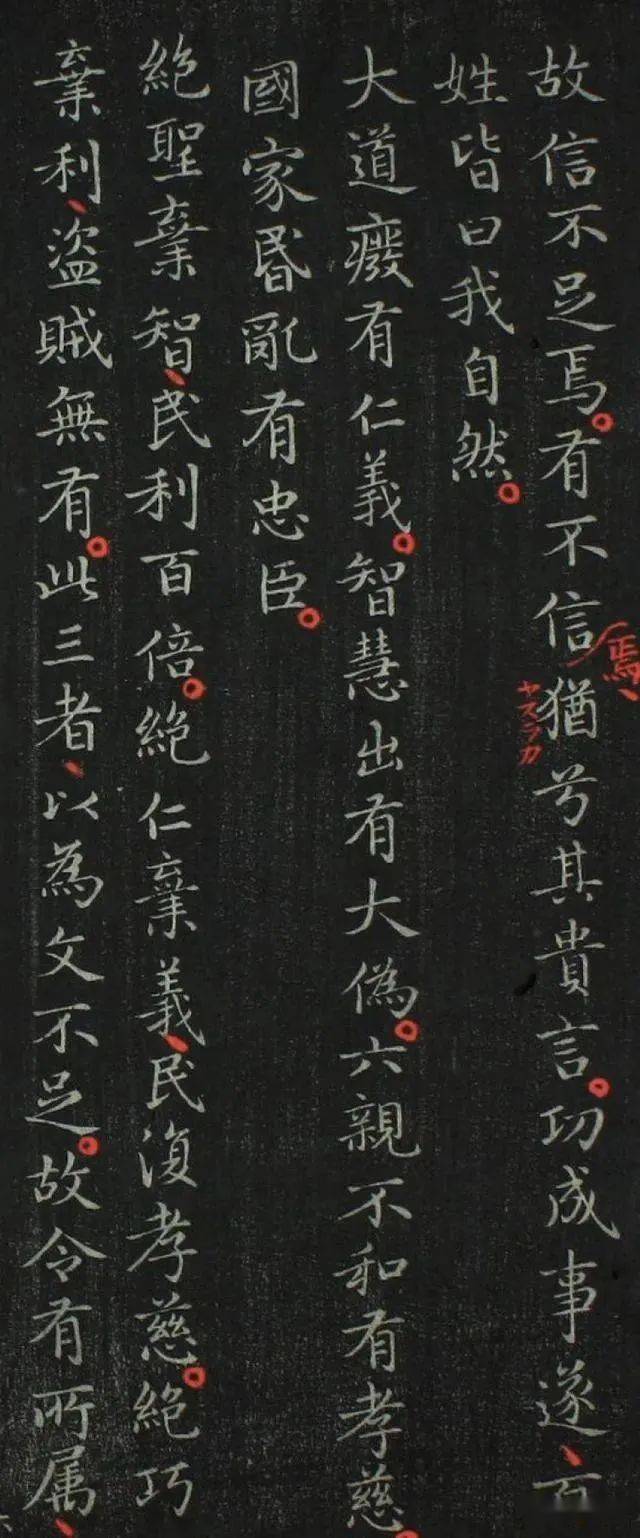 故信不足焉。有不信猶兮其貴言。功成事遂、百
焉、
ヤスラカ
姓皆曰我自然。
大道癈有仁義。智慧出有大偽。六親不和有孝慈。
國家昬亂有忠臣。
絶聖棄智、民利百倍。絶仁棄義、民復孝慈。絶巧
棄利、盜賊無有。此三者、以為文不足。故令有所属、